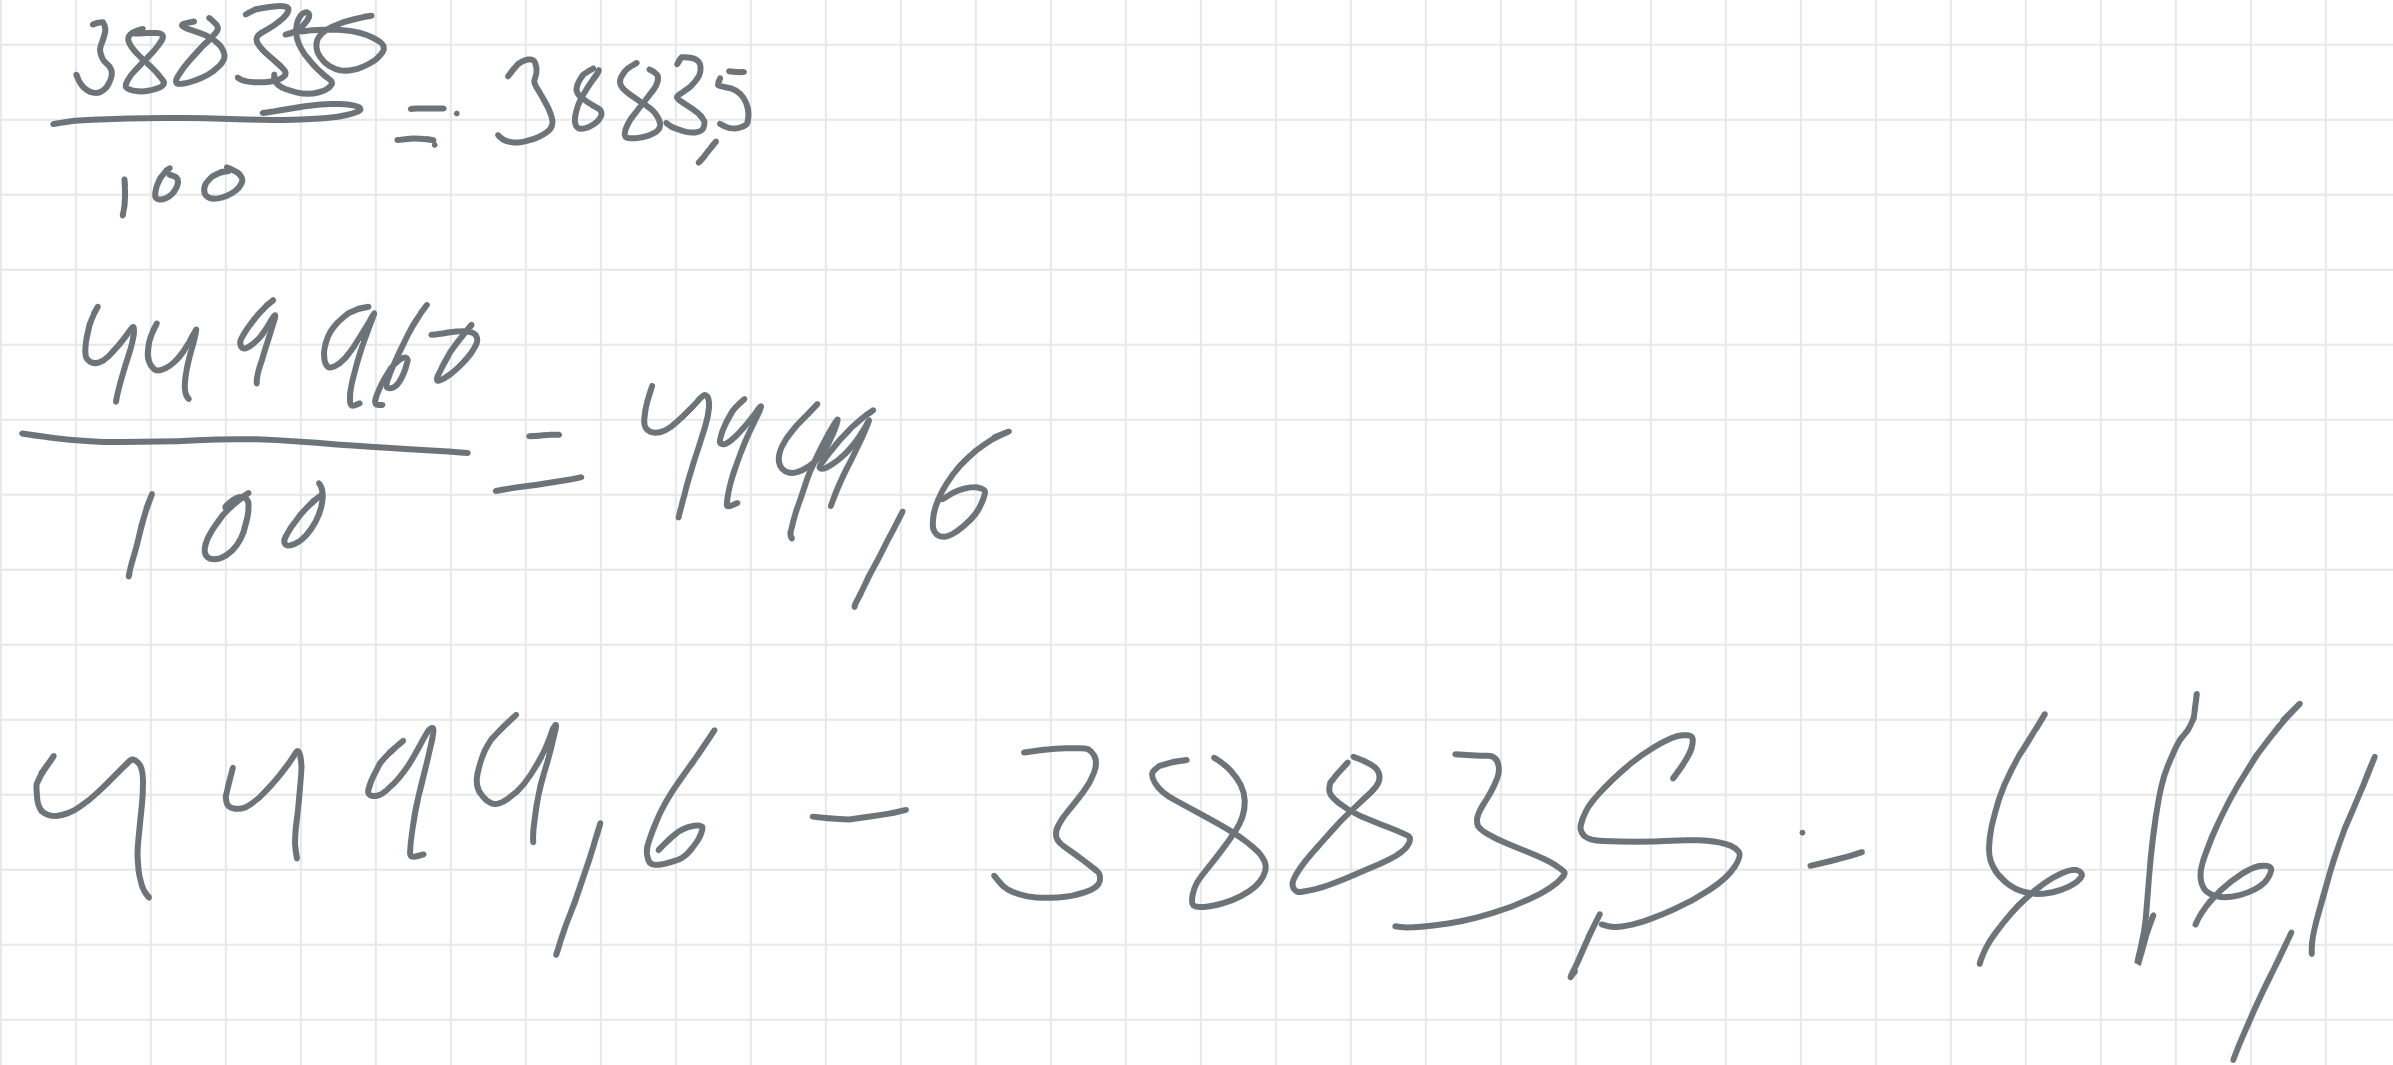 388350
100
= 3883,5
449960
100
= 4499,6
4499,6 - 3883,5 = 616,1